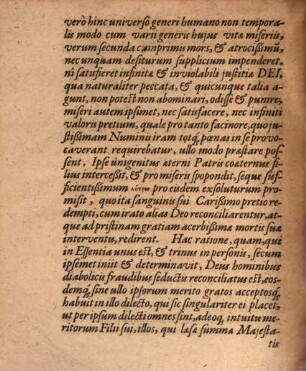 verò hinc universo generi humano non temporа-
lis modo cum varii generis hujus vitæ miseriis,
verum secunda cumprimis mors, & atrocissimū,
nec unquam desiturum supplicium impenderet,
ni satisfieret infinitæ & inviolabili justitiæ DEI,
qua naturaliter peccata, & quicunque talia a-
gunt, non potest non abominari, odisse & punire,
miseri autem ipsimet, nec satisfacere, nec infiniti
valoris pretium, quale pro tanto facinore, quo ju-
stissimam Numinis iram totq; pœnas in se provo-
caverant requirebatur, ullo modo præstare pos-
sent, Ipse unigenitus æterni Patris coæternus fi-
lius intercessit, & pro miseris spopondit, seque suf-
ficientissimum λύτρον pro eisdem exsoluturum pro-
misit, quo ita sanguinis sui Carissimo pretio re-
dempti, cum irato alias Deo reconciliarentur, at-
que ad pristinam gratiam acerbissimæ mortis suæ
interventu, redirent. Hac ratione, quam, qui
in Essentia unus est, & trinus in personis, secum
ipsemet iniit & determinavit, Deus hominibus
diabolicis fraudibus seductis reconciliatus est, eos-
demq; sine ullo ipsorum merito gratos acceptosq;
habuit in illo dilecto, qui sic singulariter ei placet,
ut per ipsum dilecti omnes sint, adeoq; intuitu me-
ritorum Filii sui, illos, qui læsa summæ Majesta-
tis